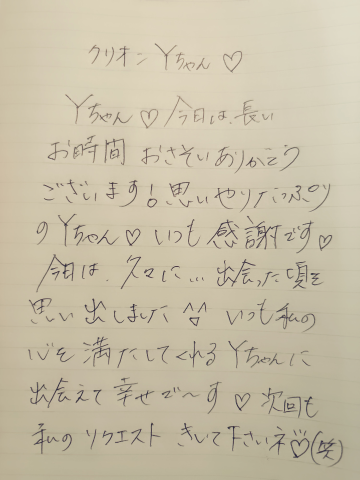 クリオン Yちゃん♡
Yちゃん♡今日は、長い
お時間 おさそいありがとう
ございます！思いやりたっぷり
のYちゃん♡いつも感謝です♡
今日は、久々に…出会った頃を
思い出しました^^いつも私の
心を満たしてくれるYちゃんに
出会えて幸せで〜す♡次回も
私のリクエストきいて下さいネ♡(笑)